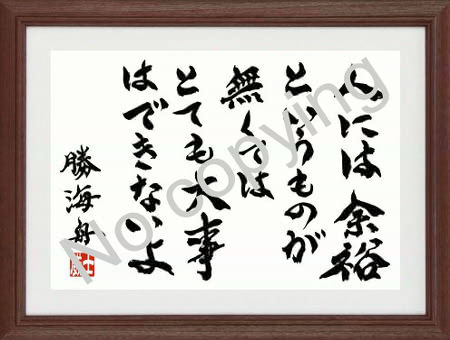 人には余裕
というものが
無くては
とても大事
はできないよ
勝海舟
No copying